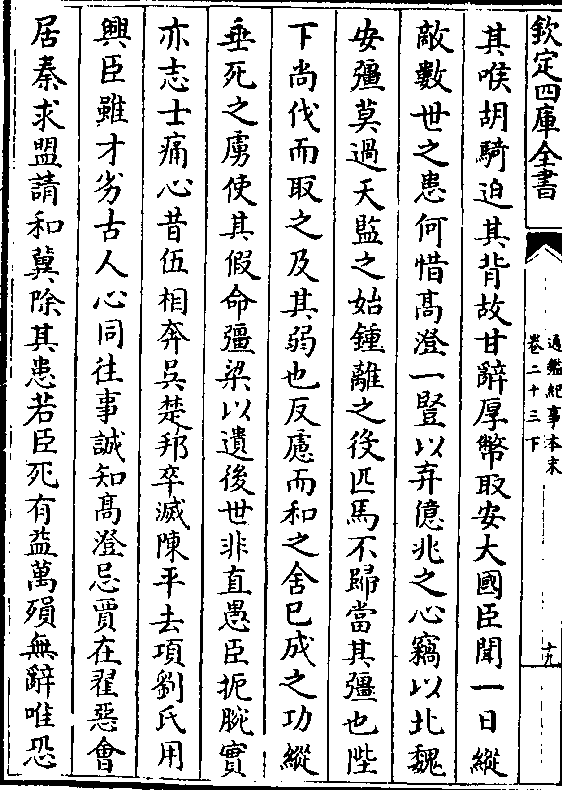 欽定四庫全書
通鑑紀事本末
卷二十三下
十九
其喉胡騎迫其背故甘辭厚幣取安大國臣聞一日縱
敵數世之患何惜髙澄一豎以弃億兆之心竊以北魏
安彊莫過天監之始鍾離之役匹馬不歸當其彊也陛
下尚伐而取之及其弱也反慮而和之舍已成之功縱
垂死之虜使其假命彊梁以遺後世非直愚臣扼腕實
亦志士痛心昔伍相奔吳楚邦卒滅陳平去項劉氏用
興臣雖才劣古人心同往事誠知髙澄忌賈在翟惡會
居秦求盟請和冀除其患若臣死有益萬殞無辭唯恐